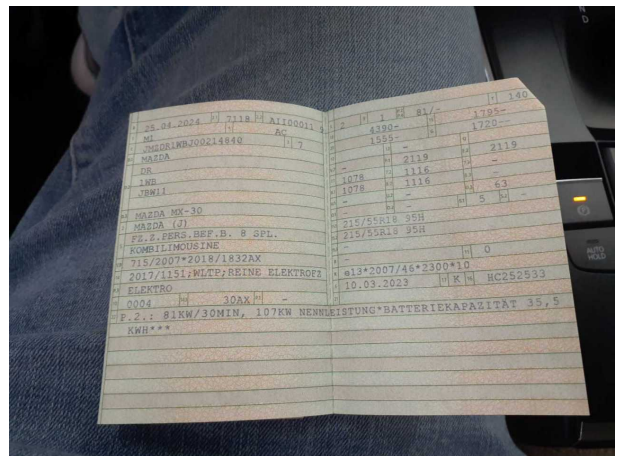 25.04.2024 7118 AII00011 9
M1 AC
JMZDR1WBJ00214640 7
MAZDA
DR
1WB
JBW11
MAZDA MX-30
MAZDA (J)
FZ.Z.PERS.BEF.B. 8 SPL.
KOMBILIMOUSINE
715/2007*2018/1832AX
2017/1151;WLTP;REINE ELEKTROFZ
ELEKTRO
0004 30AX -
P.2.: 81KW/30MIN, 107KW NENNLEISTUNG*BATTERIEKAPAZITÄT 35,5
KWH***
2 1 81/- 140
4390- 1795-
1555- 1720--
- -
- 2119 2119
1078 1116 -
1078 1116 -
- - 63
- 5 -
215/55R18 95H
215/55R18 95H
-
- 0
e13*2007/46*2300*10
10.03.2023 K HC252533
AUTO
HOLD